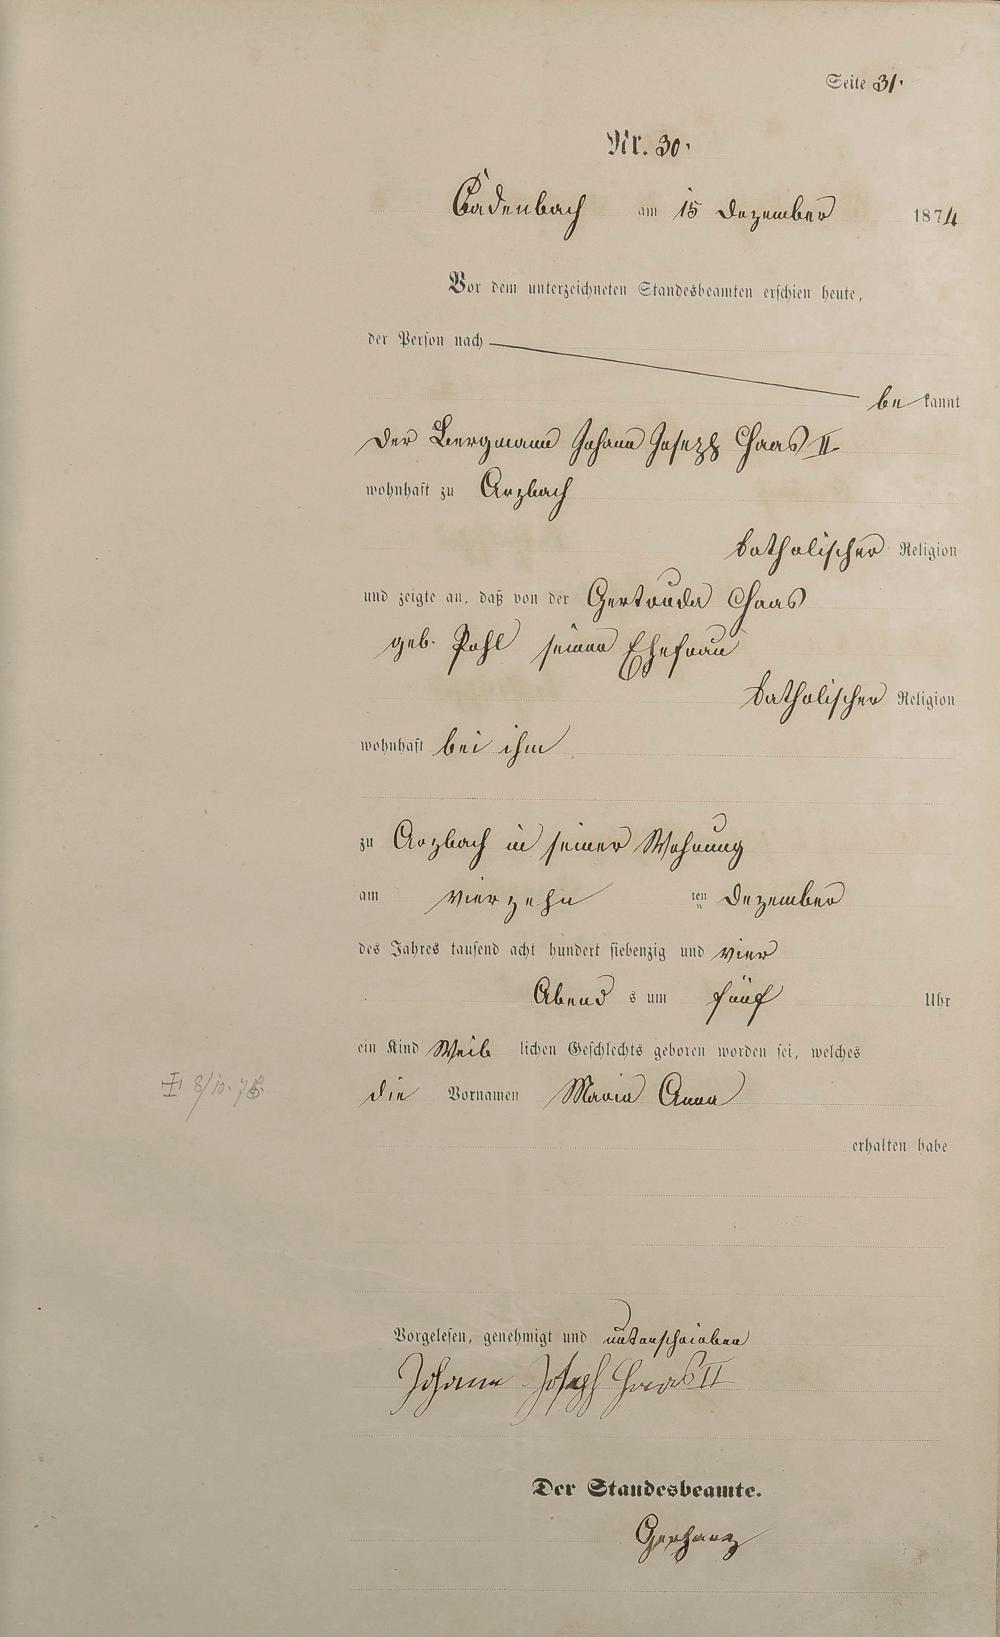 Seite 31.
Nr. 30.
Cadenbach am 15 Dezember 1874
Vor dem unterzeichneten Standesbeamten erschien heute,
der Person nach
be kannt
der Bergmann Johann Joseph Haas II.
wohnhaft zu Arzbach
katholischer Religion
und zeigte an, daß von der Gertruda Haas
geb. Pohl seiner Ehefrau
katholischer Religion
wohnhaft bei ihm
zu Arzbach in seiner Wohnung
am vierzehn ten Dezember
des Jahres tausend acht hundert siebenzig und vier
Abend s um fünf Uhr
ein Kind Weib lichen Geschlechts geboren worden sei, welches
die Vornamen Maria Anna
erhalten habe
Vorgelesen, genehmigt und unterschrieben
Johann Joseph Haas II
Der Standesbeamte.
Gerharz